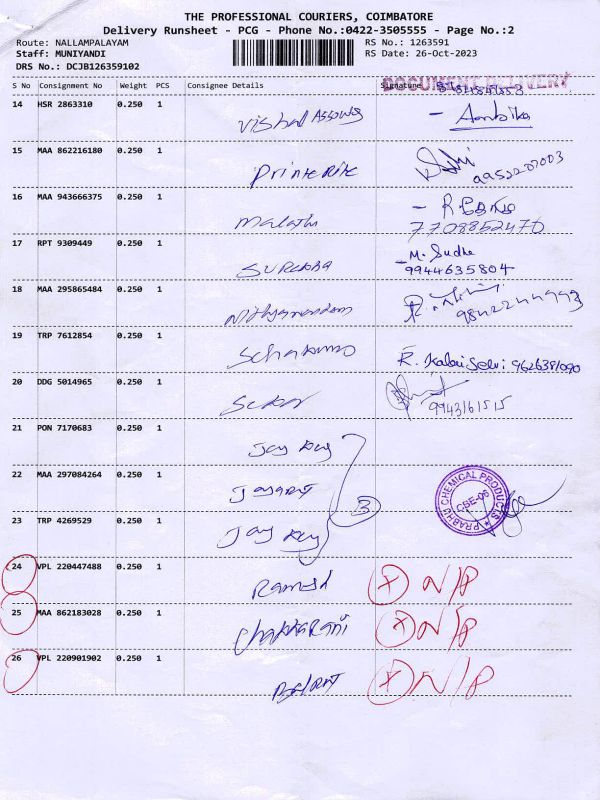 THE PROFESSIONAL COURIERS, COIMBATORE
Delivery Runsheet - PCG - Phone No.:0422-3505555 - Page No.:2
Route: NALLAMPALAYAM RS No.: 1263591
Staff: MUNIYANDI RS Date: 26-Oct-2023
DRS No.: DCJB126359102
DOCUMENT DELIVERY
S No Consignment No Weight PCS Consignee Details Signature
14 HSR 2863310 0.250 1 Vishal Assows - Ambika
15 MAA 862216180 0.250 1 Printerite
16 MAA 943666375 0.250 1 Malathi
7708852470
17 RPT 9309449 0.250 1 Surekha - M. Sudha
9944635804
18 MAA 295865484 0.250 1 Nithyanandam
19 TRP 7612854 0.250 1 R. Kalai Selvi: 9626381090
20 DDG 5014965 0.250 1 Sekar
9943161515
21 PON 7170683 0.250 1 Jay
22 MAA 297084264 0.250 1 3
PRABHU CHEMICAL PRODUCTS
CBE-06
23 TRP 4269529 0.250 1 Jay
24 VPL 220447488 0.250 1 Ramesh X N/P
25 MAA 862183028 0.250 1 Chakkarani X N/P
26 VPL 220901902 0.250 1 X N/P